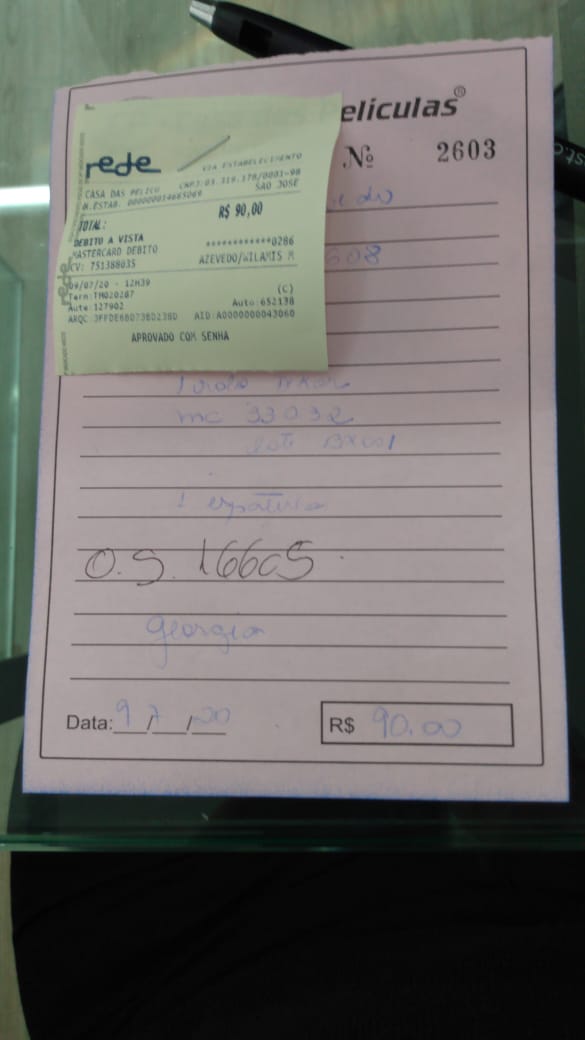 Películas®
Nº 2603
rede
VIA ESTABELECIMENTO
CNPJ:03.319.178/0001-98
CASA DAS PELICU SAO JOSE
N.ESTAB. 000000014665069
TOTAL: R$ 90,00
DEBITO A VISTA
MASTERCARD DEBITO ************0286
CV: 751388035 AZEVEDO/WILAMIS M
09/07/20 - 12H39 (C)
Term:TM020287 Auto:652138
Aute:127902
AID:A0000000043060
APROVADO COM SENHA
rede
608
mc 33032
1 espátula
O.S. 16605
Georgia
Data: 9/7/20 R$ 90,00